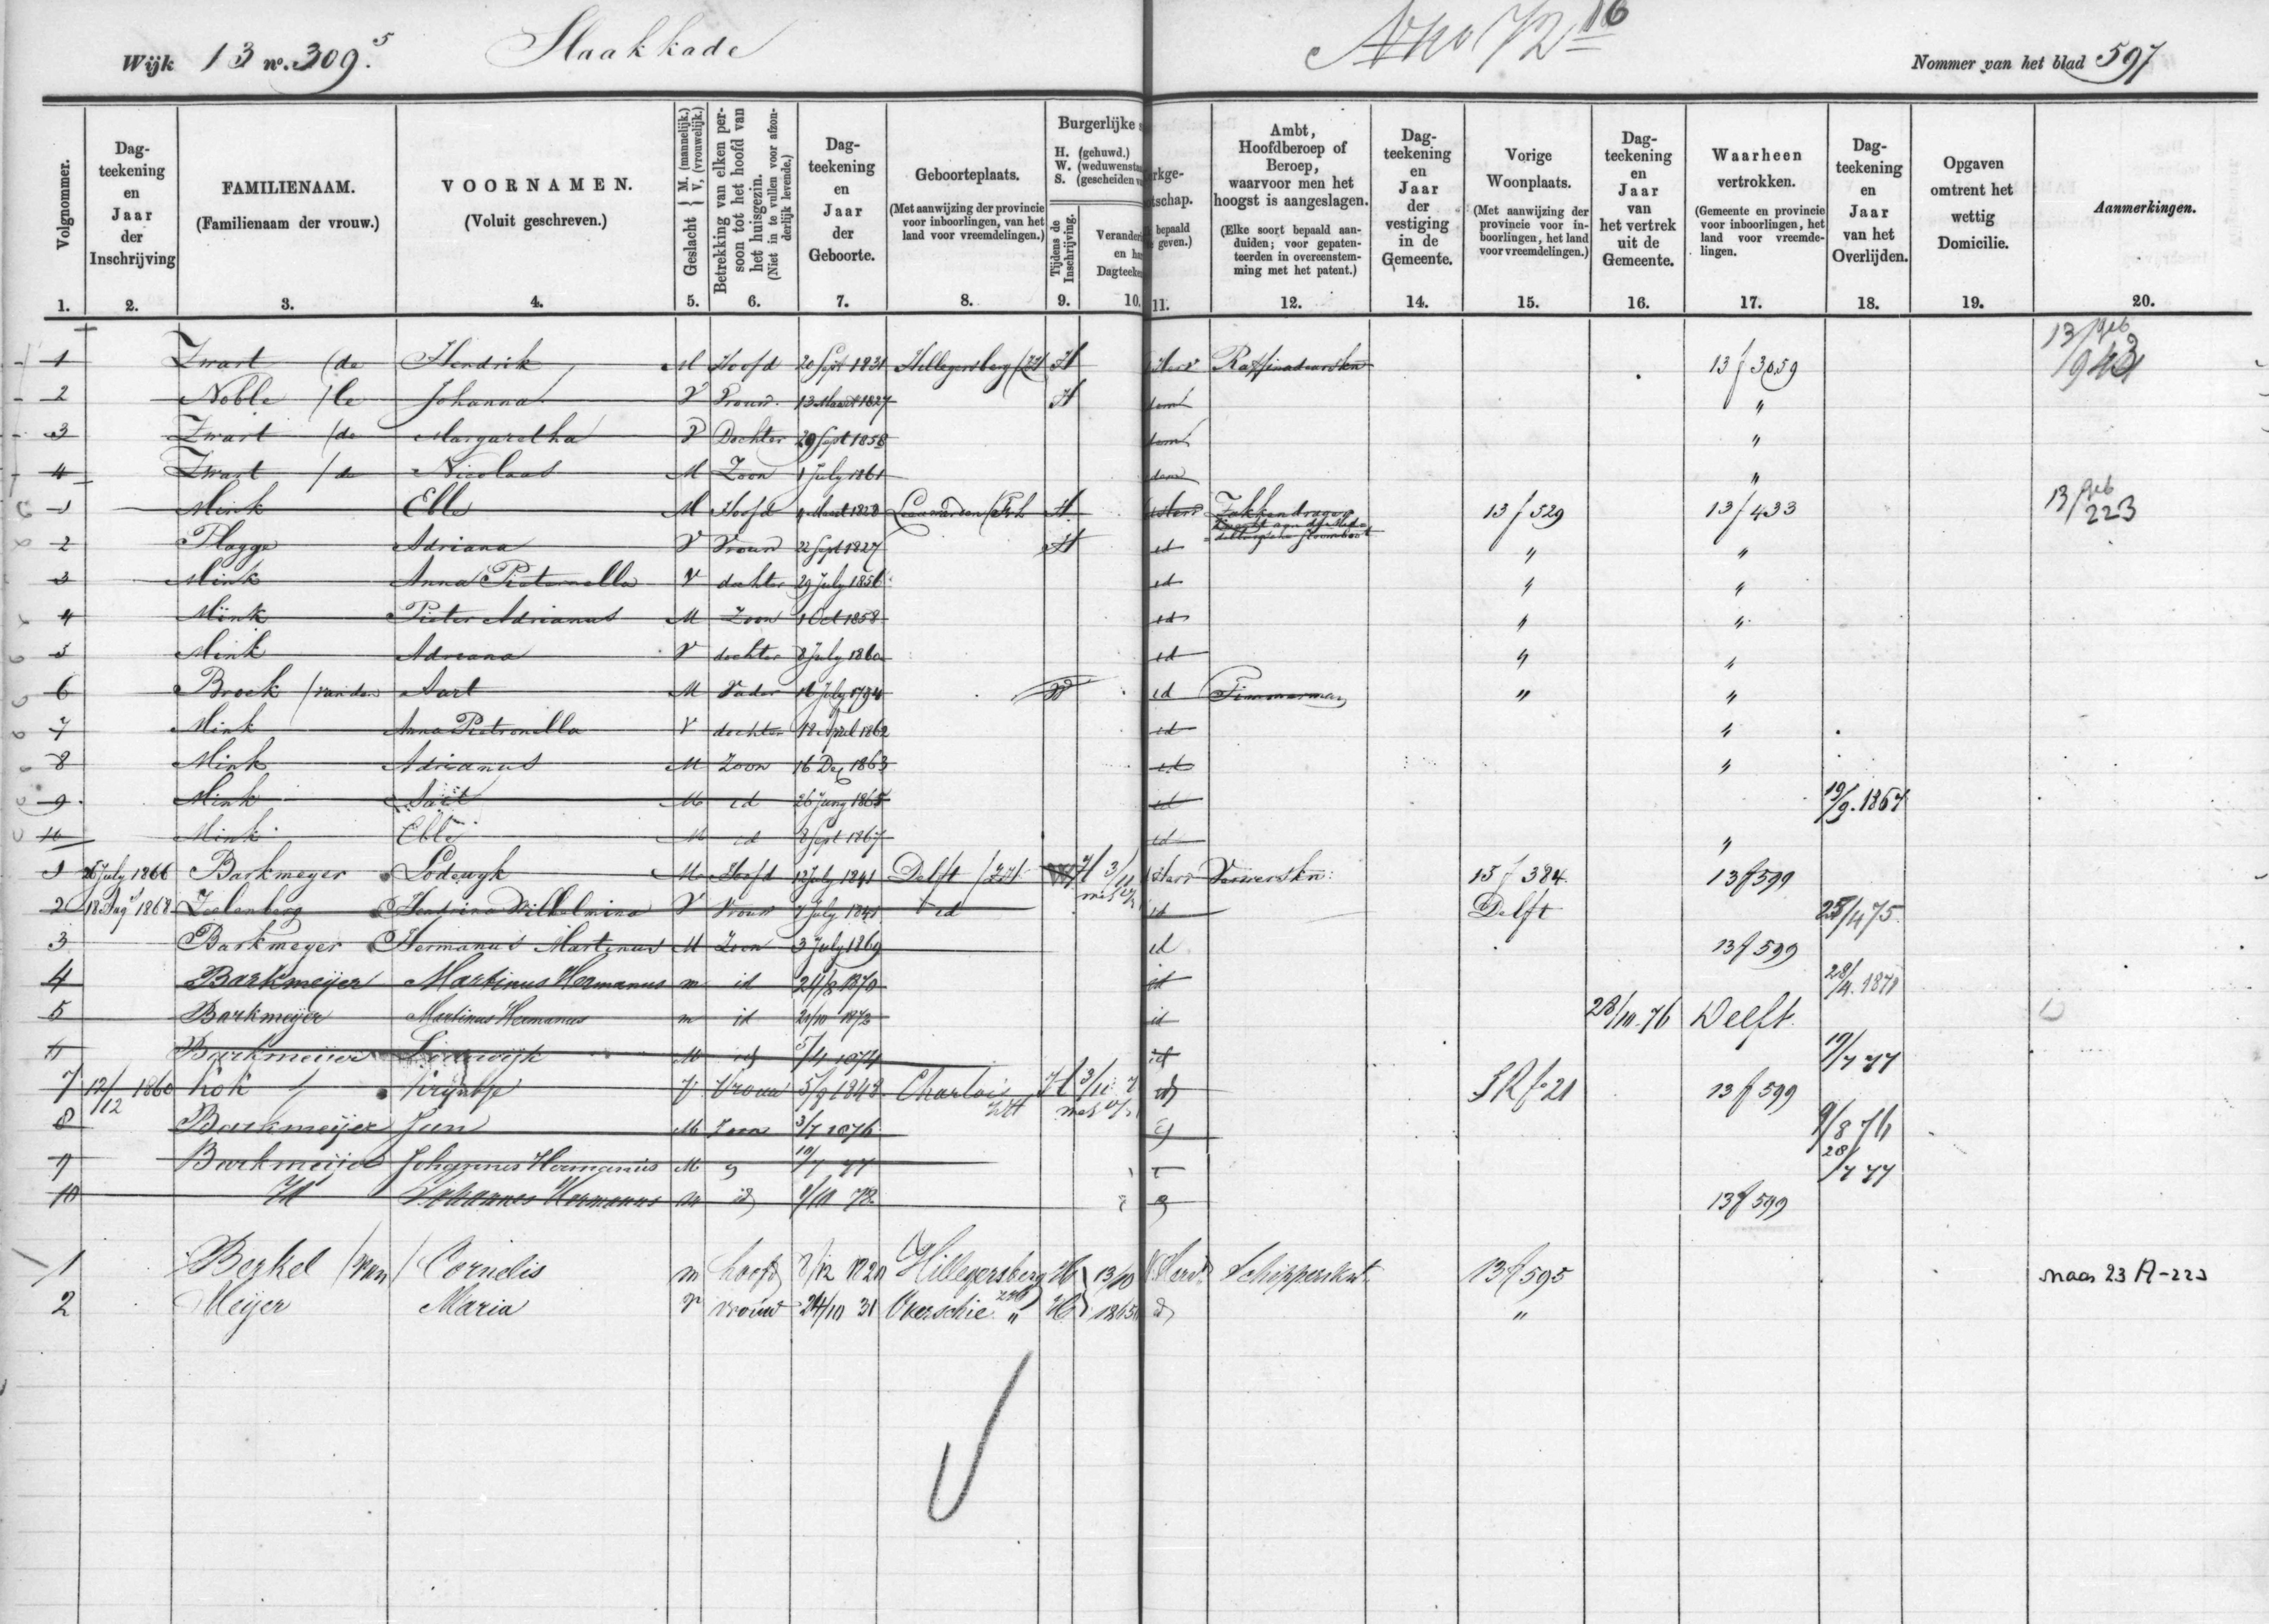 Wijk 13 no. 309.5 Slaakkade
Nommer van het blad 597
Volgnommer. 1.
Dag-teekening en Jaar der Inschrijving 2.
FAMILIENAAM. (Familienaam der vrouw.) 3.
VOORNAMEN. (Voluit geschreven.) 4.
Geslacht M. (mannelijk.) V. (vrouwelijk.) 5.
Betrekking van elken persoon tot het hoofd van het huisgezin. (Niet in te vullen voor afzonderlijk levende.) 6.
Dag-teekening en Jaar der Geboorte. 7.
Geboorteplaats. (Met aanwijzing der provincie voor inboorlingen, van het land voor vreemdelingen.) 8.
Burgerlijke
H. (gehuwd.)
W. (weduwensta
S. (gescheiden
Tijdens de Inschrijving. 9.
Verander
en h
Dagteeke
10.
rkge-
tschap.
bepaald
geven.)
11.
Ambt, Hoofdberoep of Beroep, waarvoor men het hoogst is aangeslagen. (Elke soort bepaald aanduiden; voor gepatenteerden in overeenstemming met het patent.) 12.
Dag-teekening en Jaar der vestiging in de Gemeente. 14.
Vorige Woonplaats. (Met aanwijzing der provincie voor inboorlingen, het land voor vreemdelingen.) 15.
Dag-teekening en Jaar van het vertrek uit de Gemeente. 16.
Waarheen vertrokken. (Gemeente en provincie voor inboorlingen, het land voor vreemdelingen. 17.
Dag-teekening en Jaar van het Overlijden. 18.
Opgaven omtrent het wettig Domicilie. 19.
Aanmerkingen. 20.
1 Zwart (de Hendrik M Hoofd 20 Sept 1831 Hillegersberg (ZH H Herv Raffinadeurskn 13 f 3059
2 Noble (le Johanna V Vrouw 13 Maart 1827 H dem "
3 Zwart (de Margaretha V Dochter 29 Sept 1858 dem "
4 Zwart (de Nicolaas M Zoon 1 July 1861 dem "
1 Mink Elle M Hoofd Maart 1828 Leeuwarden (Frl H Herv Zakkendrager 13 f 529 13 f 433 13/geb 223
2 Plagge Adriana V Vrouw 22 Sept 1827 H id " "
3 Mink Anna Pieternella V dochter 29 July 1856 id " "
4 Mink Pieter Adrianus M Zoon 1 Oct 1858 id " "
5 Mink Adriana V dochter 8 July 1860 id " "
6 Broek (van den Aart M Vader 16 July 1794 W id Timmerman " "
7 Mink Anna Pietronella V dochter 18 April 1862 id "
8 Mink Adrianus M Zoon 16 Dec 1863 id "
9 Mink Aart M id 26 Juny 1865 id 19/9. 1867
10 Mink Elle M id 8 Sept 1867 id "
1 26 July 1866 Barkmeyer Lodewyk M Hoofd 12 July 1841 Delft (ZH H 3/11 Herv Ververskn: 15 f 384 13 f 599
2 18 Augs 1868 Zeelenberg Hendrina Wilhelmina V Vrouw 7 July 1841 id id Delft 25/4 75
3 Barkmeyer Hermanus Martinus M Zoon 3 July 1869 id 13 f 599
4 Barkmeijer Martinus Hermanus m id 24/8 1870 id 28/4. 1871
5 Barkmeijer Martinus Hermanus m id 21/10 1872 id 28/10-76 Delft
6 Barkmeijer Lodewijk M id 5/4 1874 id 19/7 77
7 12/12 1860 Kok Krijntje V Vrouw 5/9 1848 Charlois ZH H 3/11 id SR f 21 13 f 599
8 Barkmeijer Jan M Zoon 3/7 1876 9/8 76
9 Barkmeijer Johannes Hermanus M 10/7 77 28/7 77
10 Id Johannes Hermanus m id 9/10 78 13 f 599
1 Berkel (van Cornelis m hoofd 8/12 1820 Hillegersberg ZH H 13/10 Herv Schippersknt. 13 f 595 naar 23 A-223
2 Meijer Maria V vrouw 24/10 31 Overschie " H 1865 id "